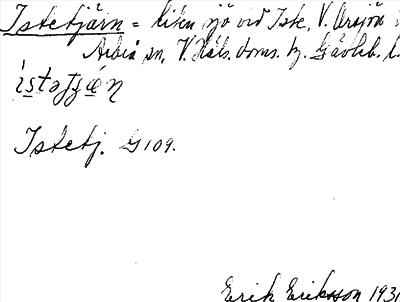 Istetjärn = liten sjö vid Iste, V. Arsjön i
Arbrå sn, V. Häls. doms. tj. Gävleb. l.
Istetj. G 109.
Erik Eriksson 1931